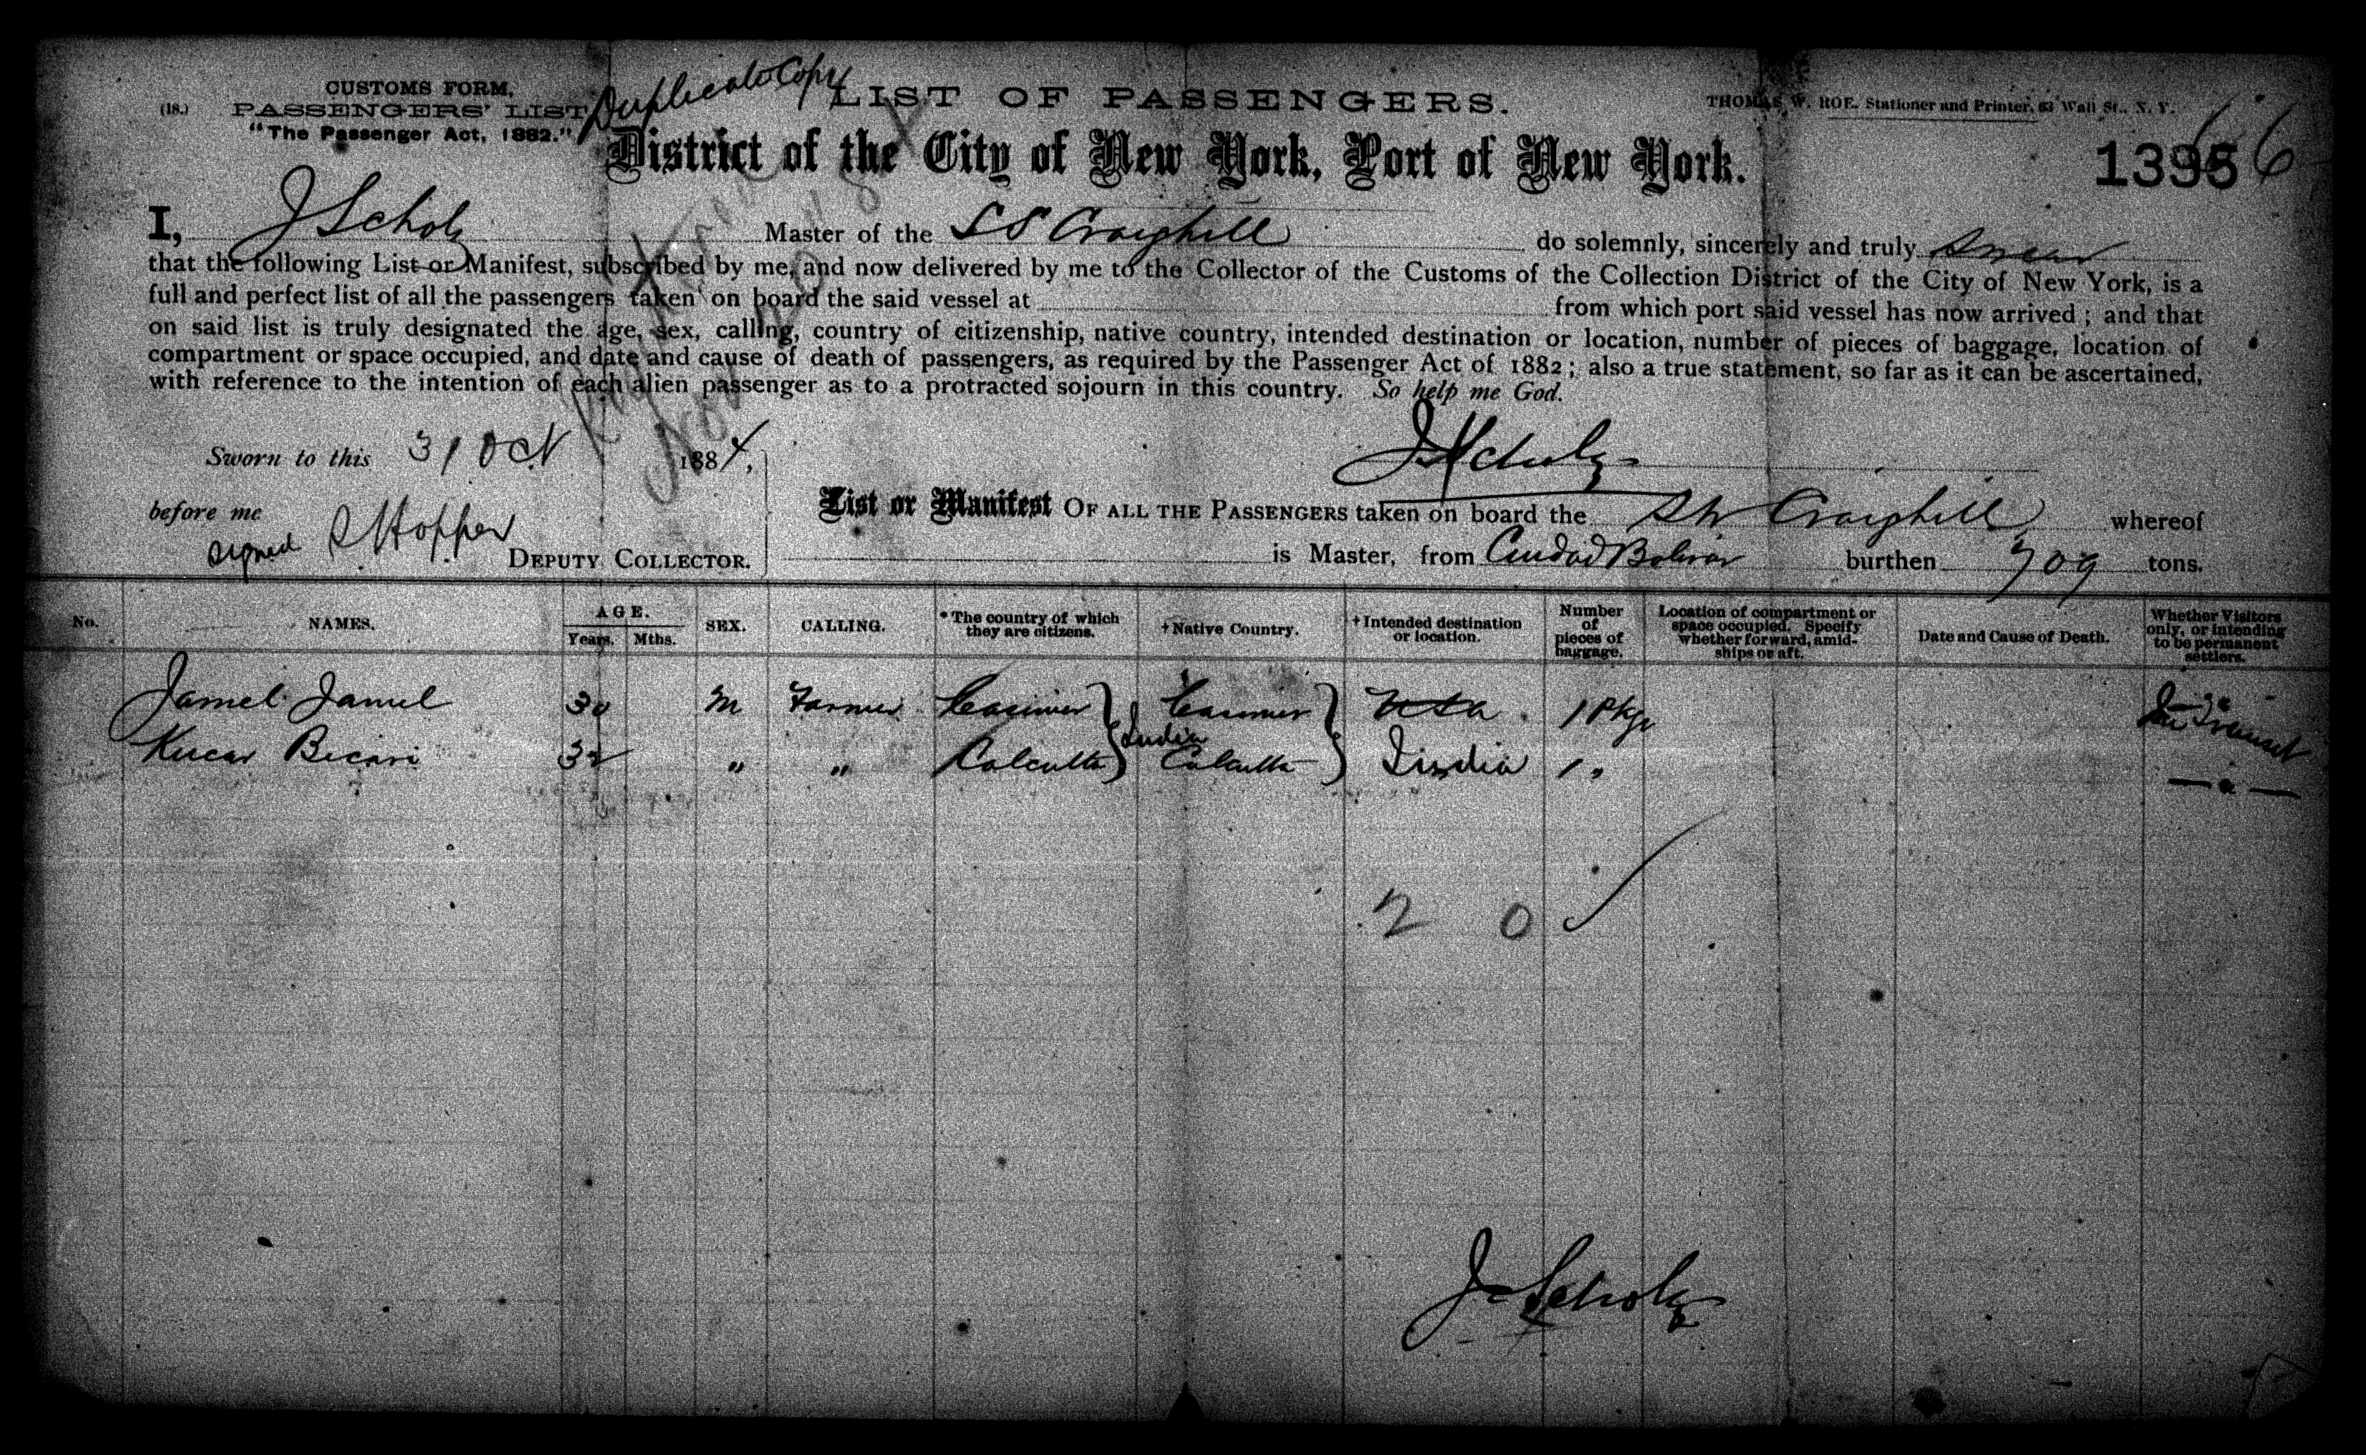 CUSTOMS FORM,
(18.) PASSENGERS' LIST
"The Passenger Act, 1882."
Duplicate Copy
LIST OF PASSENGERS.
THOMAS W. ROE, Stationer and Printer, 63 Wall St., N. Y.
District of the City of New York, Port of New York.
1395 6
I, J Scholz Master of the SS Craighill do solemnly, sincerely and truly swear
that the following List or Manifest, subscribed by me, and now delivered by me to the Collector of the Customs of the Collection District of the City of New York, is a
full and perfect list of all the passengers taken on board the said vessel at from which port said vessel has now arrived; and that
on said list is truly designated the age, sex, calling, country of citizenship, native country, intended destination or location, number of pieces of baggage, location of
compartment or space occupied, and date and cause of death of passengers, as required by the Passenger Act of 1882; also a true statement, so far as it can be ascertained,
with reference to the intention of each alien passenger as to a protracted sojourn in this country. So help me God.
Nov
Sworn to this 31 Oct 1884,
J Scholz
before me
signed Hopper
DEPUTY COLLECTOR.
List or Manifest OF ALL THE PASSENGERS taken on board the Str Craighill whereof
is Master, from Ciudad Bolivar burthen 709 tons.
No. NAMES. AGE. Years. Mths. SEX. CALLING. *The country of which they are citizens. †Native Country. †Intended destination or location. Number of pieces of baggage. Location of compartment or space occupied. Specify whether forward, amidships or aft. Date and Cause of Death. Whether Visitors only, or intending to be permanent settlers.
Jamel Jamel 30 M Farmer Casimer Casimer USA 1 Pkge In Transit
India
Kucar Bicari 32 " " Calcutta Calcutta India 1 " — " —
2 0
J Scholz